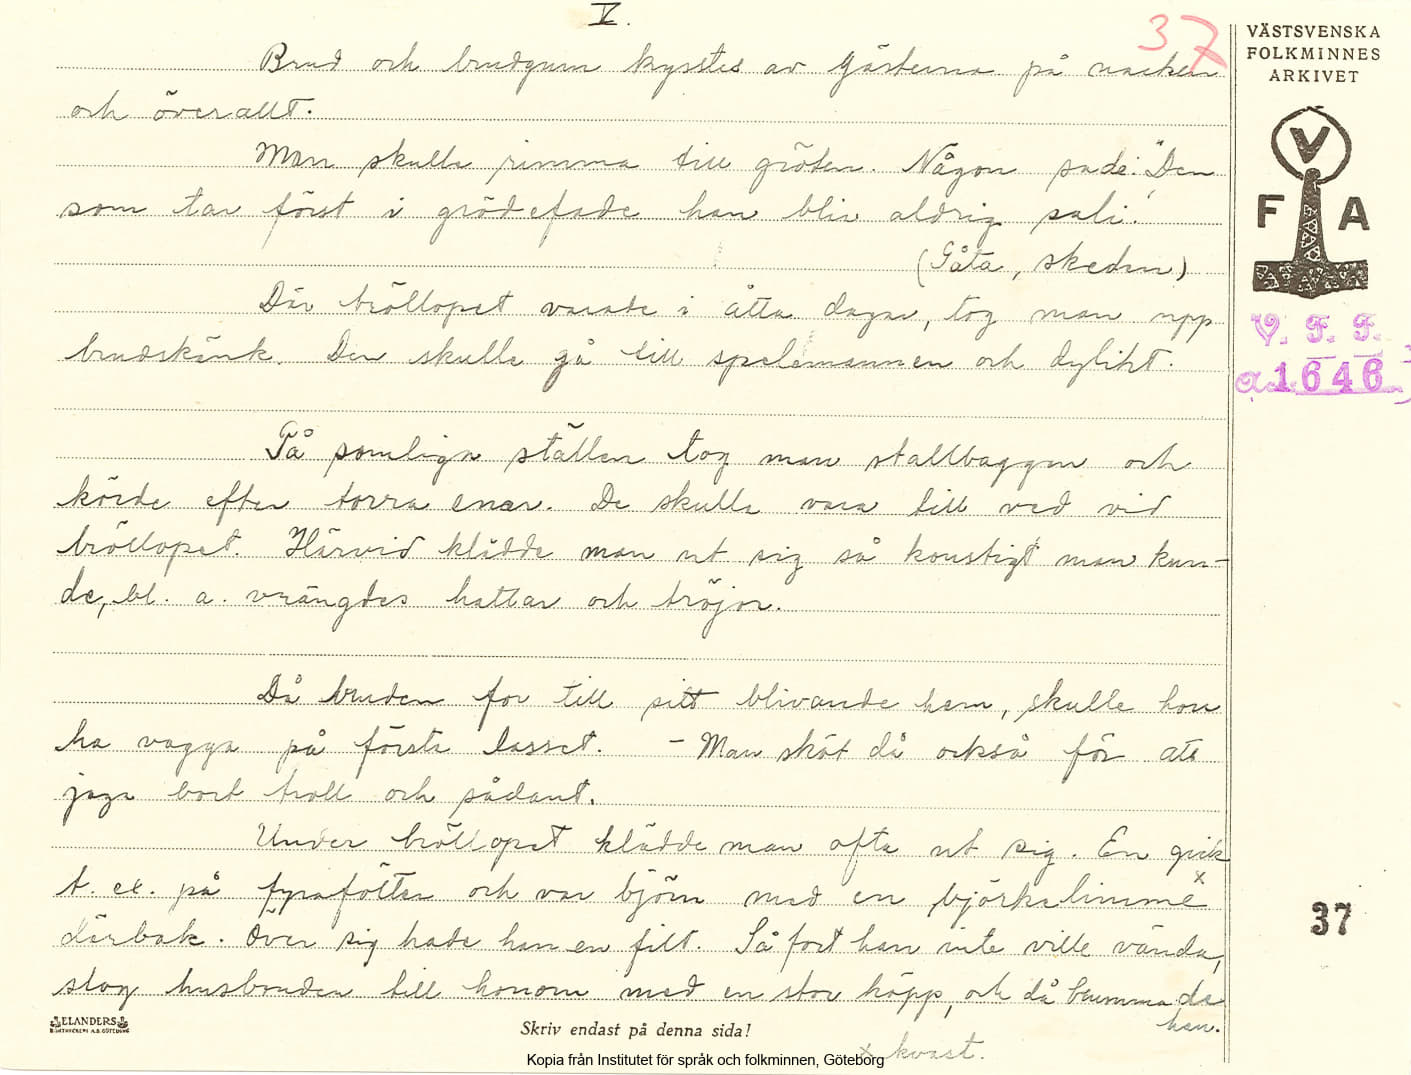 V.
37
VÄSTSVENSKA
FOLKMINNES
ARKIVET
V
F A
V. F. F.
1646
Brud och brudgum kysstes av gästerna på nacken
och överallt.
Man skulle rimma till gröten. Någon sade: "Den
som tar först i grödefade han bliv aldrig sali."
(Gåta, skeden)
Där bröllopet varade i åtta dagar, tog man upp
brudskänk. Den skulle gå till spelemannen och dylikt.
På somliga ställen tog man stallbaggen och
körde efter torra enar. De skulle vara till ved vid
bröllopet. Härvid klädde man ut sig så konstigt man kun-
de, bl. a. vrängdes hattar och tröjor.
Då bruden for till sitt blivande hem, skulle hon
ha vagga på första lasset. – Man sköt då också för att
jaga bort troll och sådant.
Under bröllopet klädde man ofta ut sig. En gick
t. ex. på fyrafötter och var björn med en björkalimme x
därbak. Över sig hade han en filt. Så fort han inte ville vända,
slog husbonden till honom med en stor käpp, och då brummade
han.
x kvast.
37
ELANDERS
BOKTRYCKERI A.B. GÖTEBORG
Skriv endast på denna sida!
Kopia från Institutet för språk och folkminnen, Göteborg